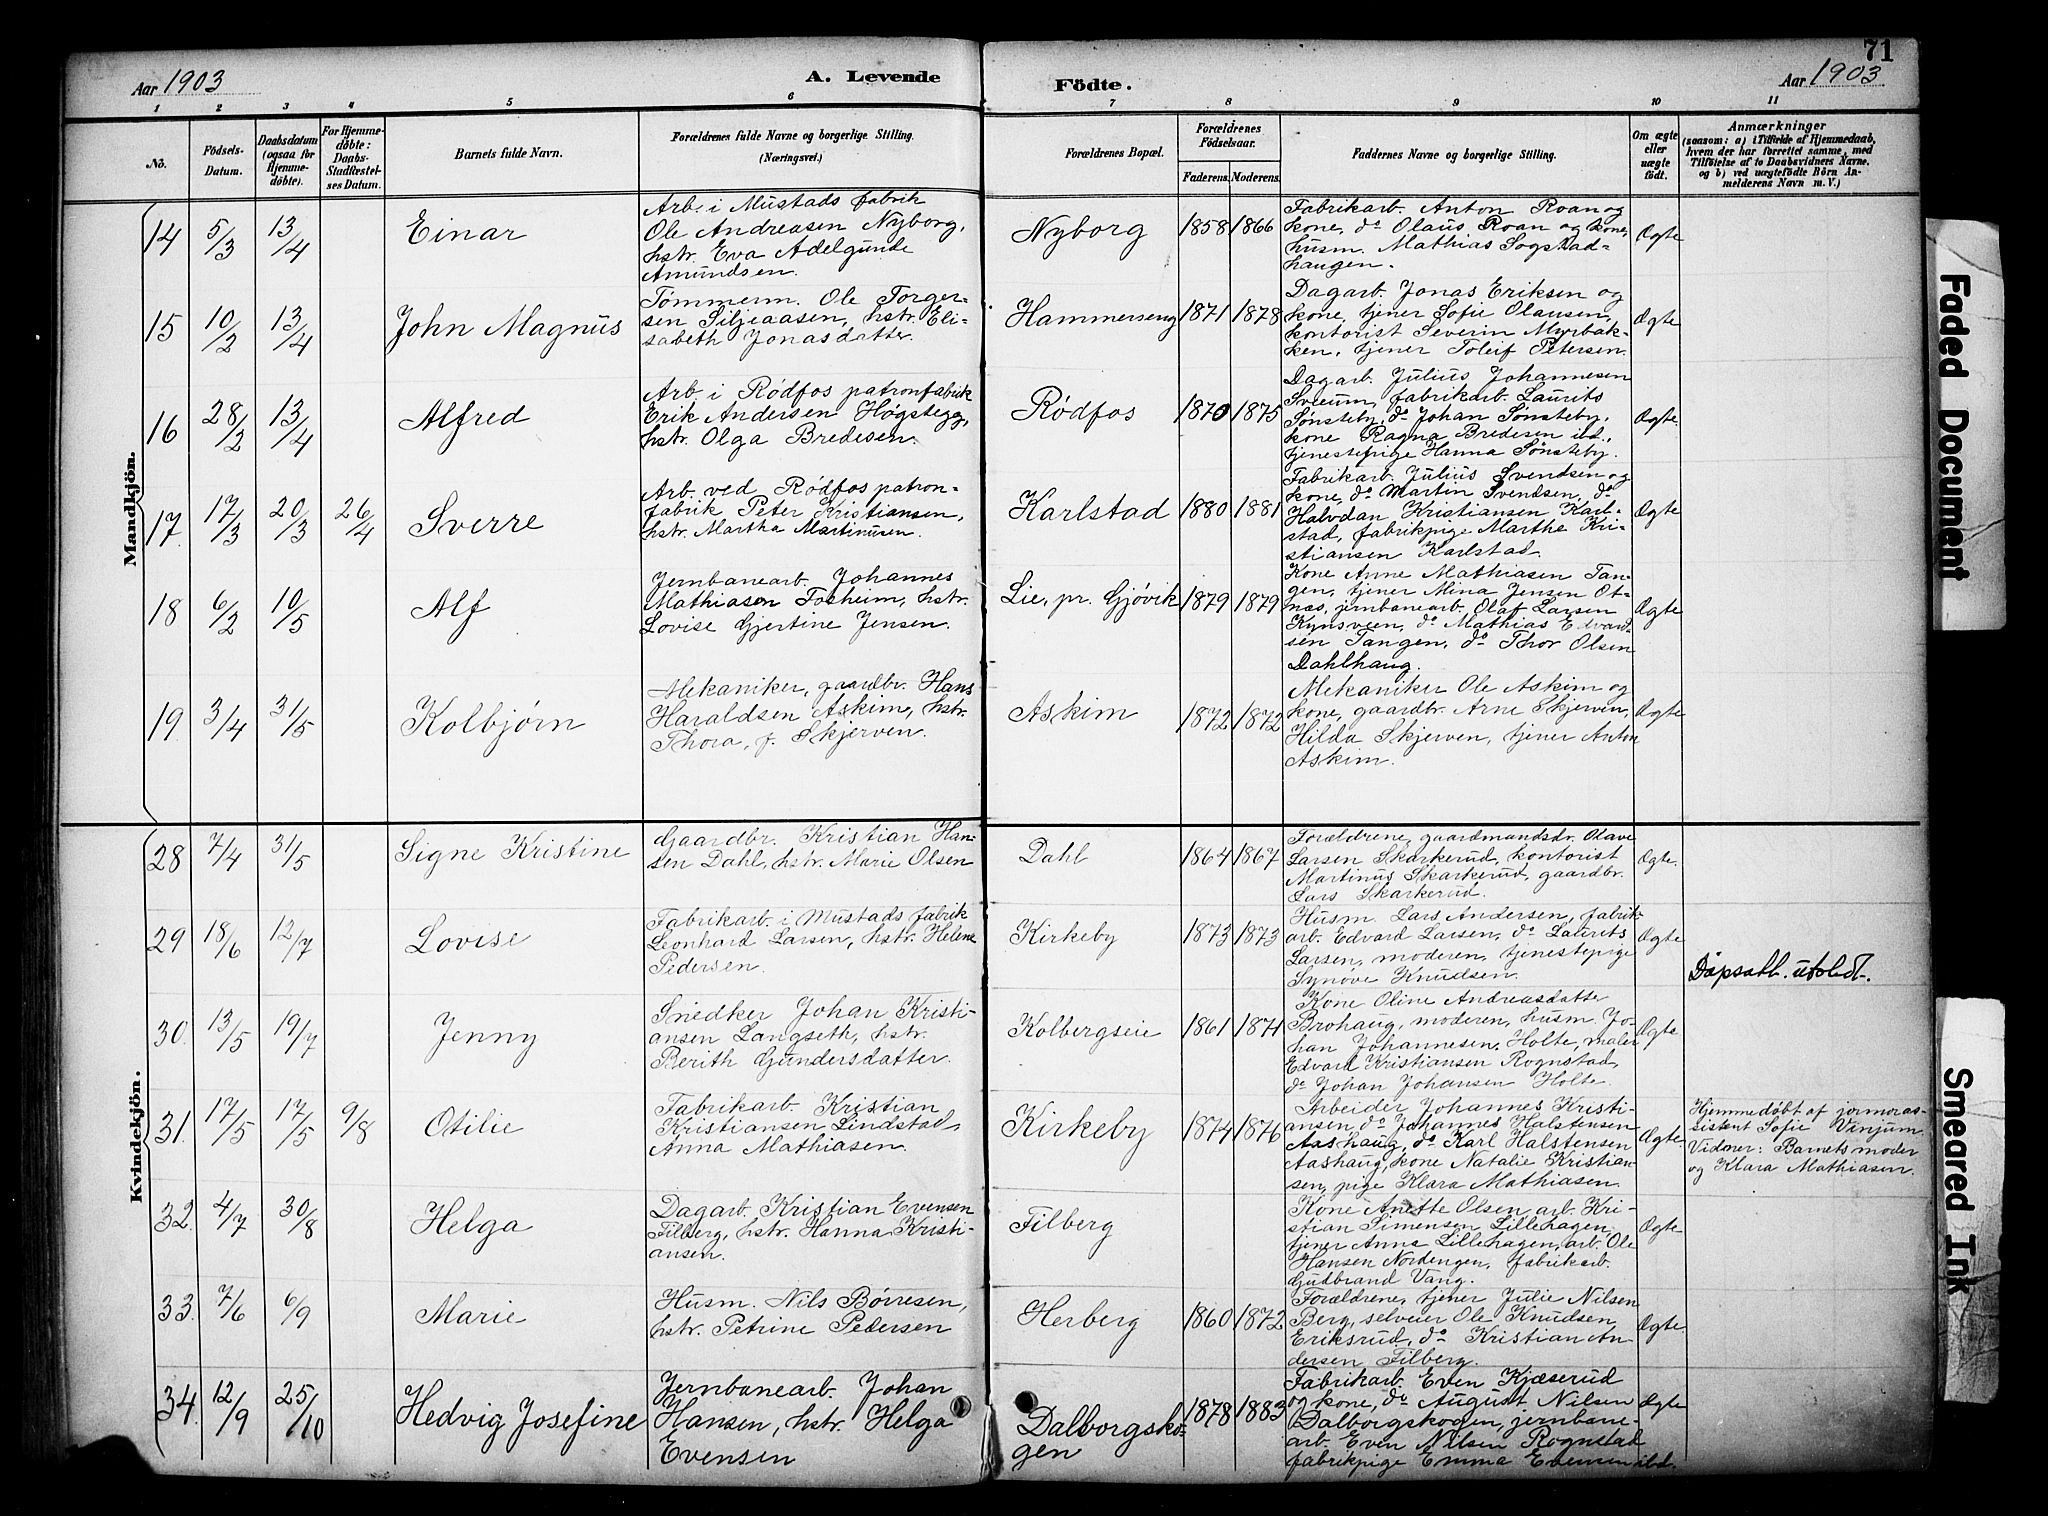 71
Aar 1903
A. Levende
Födte.
Aar 1903
1 2 3 4 5 6 7 8 9 10 11
No.
Födsels-
Datum.
Daabsdatum
(ogsaa for
Hjemme-
döbte).
For Hjemme-
döbte:
Daabs-
Stadfæstel-
ses Datum.
Barnets fulde Navn.
Forældrenes fulde Navne og borgerlige Stilling.
(Næringsvei.)
Forældrenes Bopæl.
Forældrenes
Födselsaar.
Faderens. Moderens.
Faddernes Navne og borgerlige Stilling.
Om ægte
eller
uægte
födt.
Anmærkninger
(saasom: a) i Tilfælde af Hjemmedaab,
hvem der har forrettet samme, med
Tilföielse af to Daabsvidners Navne.
og b) ved uægtefödte Börn An-
melderens Navn m. V.)
Mandkjön.
14 5/3 13/4
Einar
Arb. i Mustads fabrik
Ole Andreasen Nyborg,
hstr. Eva Adelgunde
Amundsen.
Nyborg
1858 1866
Fabrikarb. Anton Roan og
kone, do Olaus Roan og kone,
husm. Mathias Sogstad-
haugen.
Ægte
15 10/2 13/4
John Magnus
Tømmerm. Ole Torger-
sen Siljeaasen, hstr. Eli-
sabeth Jonasdatter.
Hammerseng
1871 1878
Dagarb. Jonas Eriksen og
kone, tjener Sofie Olausen,
kontorist Severin Myrbak-
ken, tjener Toleif Petersen.
Ægte
16 28/2 13/4
Alfred
Arb. i Rødfos patronfabrik
Erik Andersen Høgstegg,
hstr. Olga Bredesen.
Rødfos
1870 1875
Dagarb. Julius Johannesen
Sveum, fabrikarb. Laurits
Sønsteby, do Johan Sønsteby,
kone Ragna Bredesen ibd.,
tjenestepige Hanna Sønsteby.
Ægte
17. 17/3 20/3 26/4
Sverre
Arb. ved Rødfos patron-
fabrik Peter Kristiansen,
hstr. Martha Martinusen.
Karlstad
1880 1881
Fabrikarb. Julius Svendsen og
kone, do Martin Svendsen, do
Halvdan Kristiansen Karl-
stad, fabrikpige Marthe Kri-
stiansen Karlstad.
Ægte
18 6/2 10/5
Alf
Jernbanearb. Johannes
Mathiasen Fosheim, hstr.
Lovise Gjertine Jensen.
Lie, pr. Gjøvik
1879 1879
Kone Anne Mathiasen Tan-
gen, tjener Mina Jensen Ot-
nas, jernbanearb. Olaf Larsen
Kynsveen, do Mathias Edvard-
sen Tangen, do Thor Olsen
Dahlhaug.
Ægte
19 3/4 31/5
Kolbjørn
Mekaniker, gaardbr. Hans
Haraldsen Askim, hstr.
Thora, f. Skjerven.
Askim
1872 1872
Mekaniker Ole Askim og
kone, gaardbr. Arne Skjerven,
Hilda Skjerven, tjener Anton
Askim.
Ægte
Kvindekjön.
28 7/4 31/5
Signe Kristine
Gaardbr. Kristian Han-
sen Dahl, hstr. Marie Olsen
Dahl
1864 1867
Forældrene, gaardmandsdr. Olave
Larsen Skarkerud, kontorist
Martinus Skarkerud, gaardbr.
Lars Skarkerud.
Ægte.
29 18/6 12/7
Lovise
Fabrikarb. i Mustads fabrik
Leonhard Larsen, hstr. Helene
Pedersen.
Kirkeby
1873 1873
Husm. Lars Andersen, fabrik-
arb. Edvard Larsen, do Laurits
Larsen, moderen, tjenestepige
Synøve Knudsen.
Ægte
Døpsatt. utstedt.
30. 13/5 19/7
Jenny
Snedker Johan Kristi-
ansen Langseth, hstr.
Berith Gundersdatter.
Kolbergseie
1861 1871
Kone Oline Andreasdatte
Brohaug, moderen, husm. Jo-
han Johannesen Holte, maler
Edvard Kristiansen Rognstad,
do Johan Johansen Holte.
Ægte
31. 17/5 17/5 9/8
Otilie
Fabrikarb. Kristian
Kristiansen Lindstad,
Anna Mathiasen.
Kirkeby
1874 1876
Arbeider Johannes Kristi-
ansen do Johannes Halstensen
Aashaug, do Karl Halstensen
Aashaug, kone Natalie Kristian-
sen, pige Klara Mathiasen.
Ægte
Hjemmedøbt af jormoras-
sistent Sofie Vinjum.
Vidner: Barnets moder
og Klara Mathiasen.
32. 4/7 30/8
Helga
Dagarb. Kristian Evensen
Filberg, hstr. Hanna Kristi-
ansen.
Filberg
Kone Anette Olsen, arb. Kri-
stian Simensen Lillehagen,
tjener Anna Lillehagen, arb. Ole
Hansen Nordengen, fabrikarb.
Gudbrand Vang.
Ægte
33. 7/6 6/9
Marie
Husm. Nils Børresen,
hstr. Petrine Pedersen
Herberg
1860 1872
Forældrene, tjener Julie Nilsen
Berg, selveier Ole Knudsen
Eriksrud, do Kristian An-
dersen Filberg.
Ægte.
34. 12/9 25/10
Hedvig Josefine
Jernbanearb. Johan
Hansen, hstr. Helga
Evensen
Dalborgsko-
gen
1878 1883
Fabrikarb. Even Kjæserud
og kone, do August Nilsen
Dalborgskogen, jernbane-
arb. Even Nilsen Rognstad
fabrikpige Emma Evensen ibd.
Ægte
Faded Document
Smeared Ink